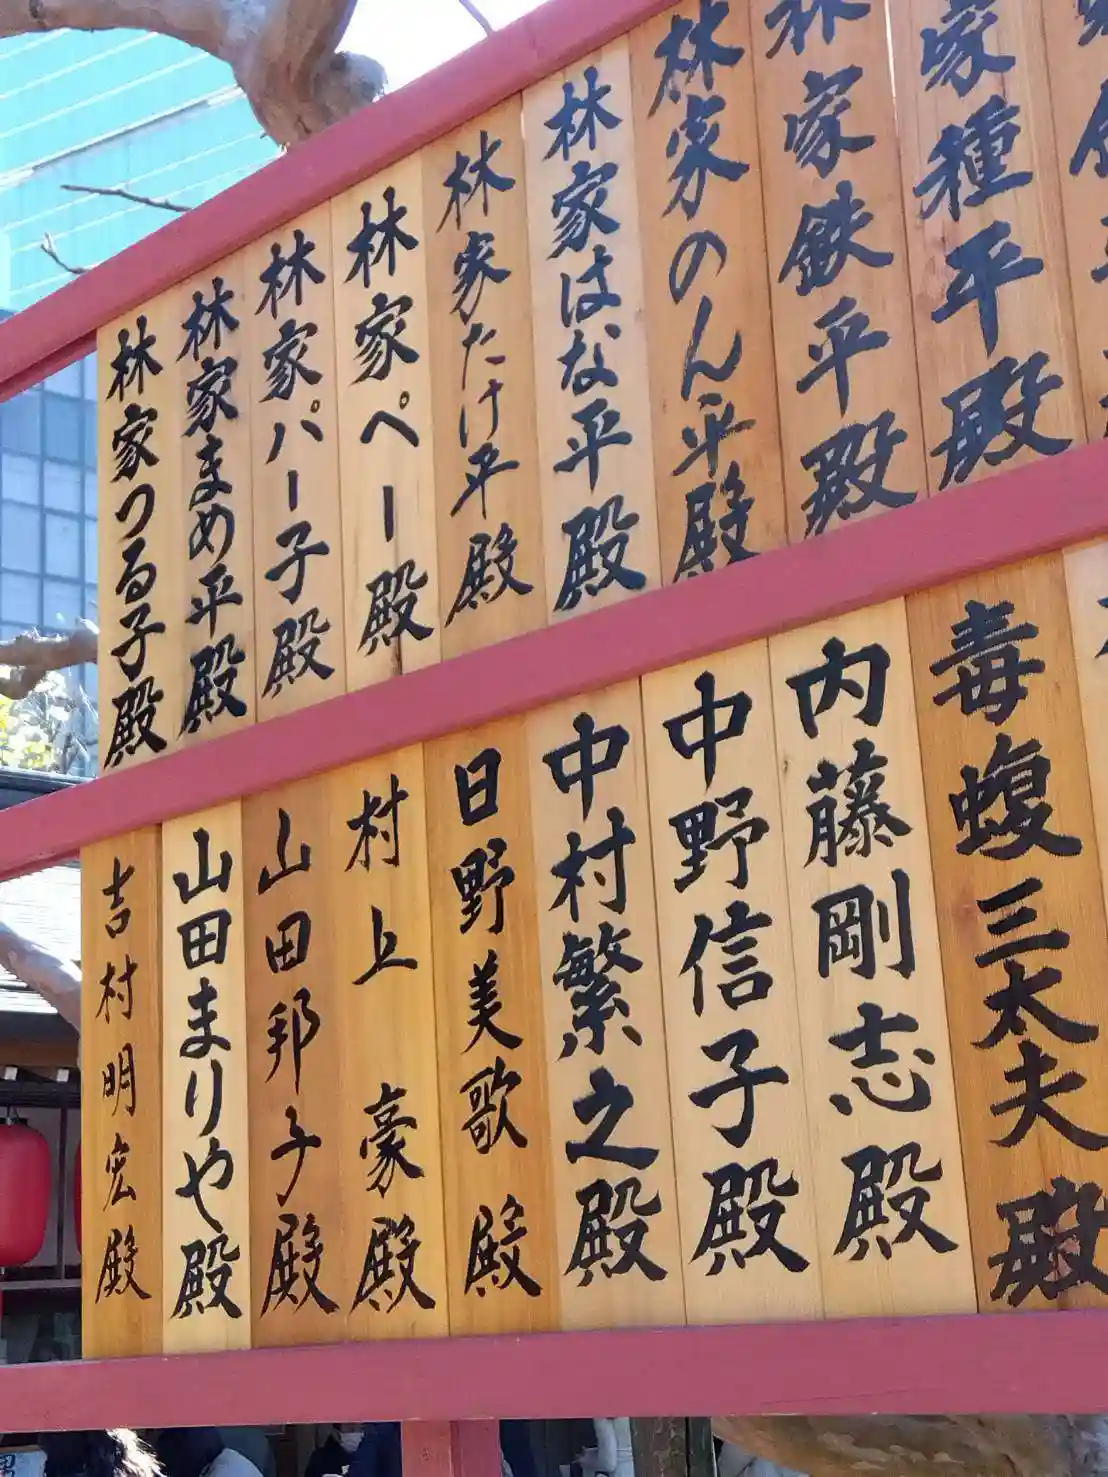 家種平殿
林家鉄平殿
林家のん平殿
林家はな平殿
林家たけ平殿
林家ペー殿
林家パー子殿
林家まめ平殿
林家つる子殿
毒蝮三太夫殿
内藤剛志殿
中野信子殿
中村繁之殿
日野美歌殿
村上豪殿
山田邦子殿
山田まりや殿
吉村明宏殿